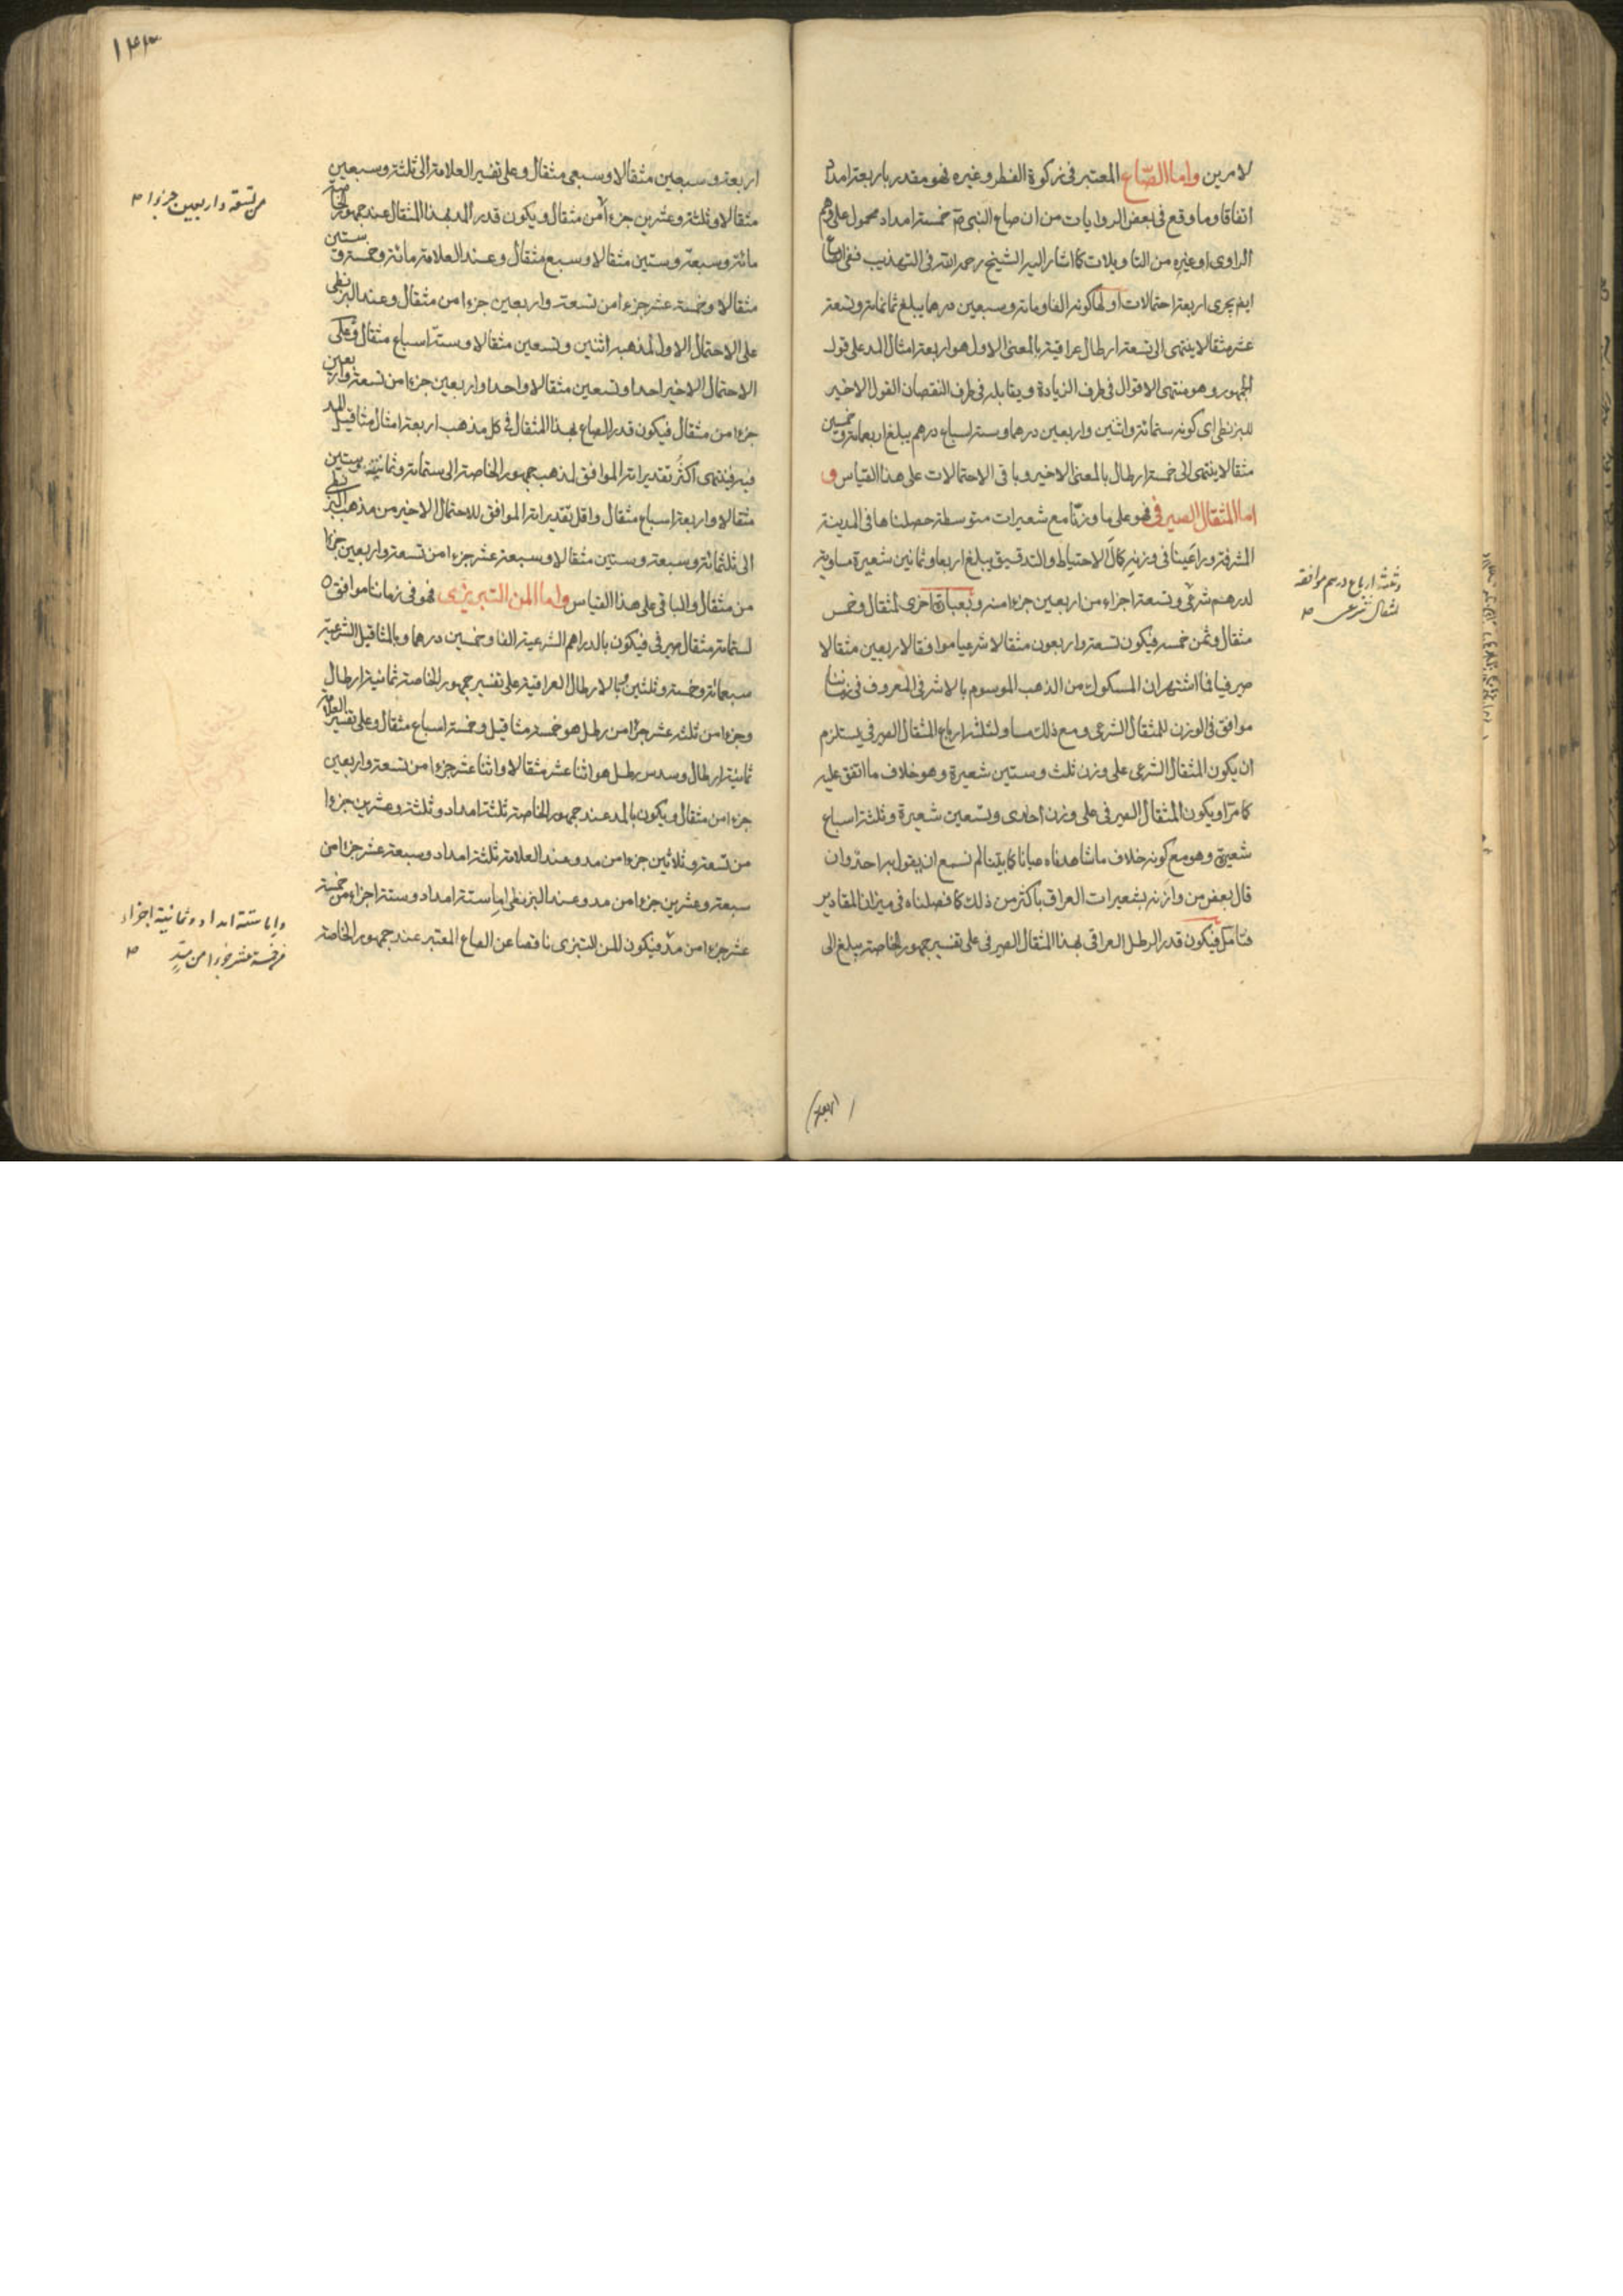 لا مرين واما الصّاع المعتبر فى زكوة الفطر وغيره فهو مقدر باربعة امداد
اتفاقا وما وقع فى بعض الروايات من ان صاع النبى ص خمسة امداد محمول على وهم
الراوى او غيره من التاويلات كما اشار اليه الشيخ رحمه الله فى التهذيب ففى الصاع
ايضا يجرى اربعة احتمالات اولها كونه الفا ومائة وسبعين درهما يبلغ ثمانمائة وتسعة
عشر مثقالا ينتهى الى تسعة ارطال عراقية بالمعنى الاول هو اربعة امثال المد على قول
الجمهور وهو منتهى الاقوال فى طرف الزيادة ويقابله فى طرف النقصان القول الاخير
للبزنطى اى كونه ستمائة واثنين واربعين درهما وستة اسباع درهم يبلغ اربعمائة وخمسين
مثقالا ينتهى الى خمسة ارطال بالمعنى الاخير وباقى الاحتمالات على هذا القياس و
اما المثقال الصيرفى فهو على ما وزنّا مع شعيرات متوسطة حصلناها فى المدينة
المشرفة وراعينا فى وزنه كمال الاحتياط والتدقيق يبلغ اربعا وثمانين شعيرة مساوية
لدرهم شرعى وتسعة اجزاء من اربعين جزءا منه وبعبارة اخرى لمثقال وخمس
مثقال وثمن خمسه فيكون تسعة واربعون مثقالا شرعيا موافقا لاربعين مثقالا
صيرفيا فما اشتهر ان المسكوك من الذهب الموسوم بالاشرفى المعروف فى زماننا
موافق فى الوزن للمثقال الشرعى ومع ذلك مساو لثلثة ارباع المثقال الصيرفى يستلزم
ان يكون المثقال الشرعى على وزن ثلث وستين شعيرة وهو خلاف ما اتفق عليه
كما مرّ او يكون المثقال الصيرفى على وزن احدى وتسعين شعيرة وثلثة اسباع
شعيرة وهو مع كونه خلاف ما شاهدناه عيانا كما بيّنا لم نسمع ان يقول به احد وان
قال بعض من وازنه بشعيرات العراق باكثر من ذلك كما فصلناه فى ميزان المقادير
فتامل فيكون قدر الرطل العراقى بهذا المثقال الصيرفى على تفسير جمهور الخاصة يبلغ الى
وثلثة ارباع درهم موافقة
لمثقال شرعى ص
اربعة
١٤٣
اربعة وسبعين مثقالا وسبعى مثقال وعلى تفسير العلامة الى ثلثة وسبعين
مثقالا وثلثة وعشرين جزءا من مثقال ويكون قدر المد بهذا المثقال عند جمهور الخاصة
مائة وسبعة وستين مثقالا وسبع مثقال وعند العلامة مائة وخمسة وستين
مثقالا وخمسة عشر جزءا من تسعة واربعين جزءا من مثقال وعند البزنطى
على الاحتمال الاول لمذهبه اثنين وتسعين مثقالا وستة اسباع مثقال وعلى
الاحتمال الاخير احدا وتسعين مثقالا واحدا واربعين جزءا من تسعة واربعين
جزءا من مثقال فيكون قدر الصاع بهذا المثقال فى كل مذهب اربعة امثال مثاقيل المد
فيه فينتهى اكثر تقديراته الموافق لمذهب جمهور الخاصة الى ستمائة وثمانية وستين
مثقالا واربعة اسباع مثقال واقل تقديراته الموافق للاحتمال الاخير من مذهب البزنطى
الى ثلثمائة وسبعة وستين مثقالا وسبعة عشر جزءا من تسعة واربعين جزءا
من مثقال والباقى على هذا القياس واما المن التبريزى فهو فى زماننا موافق
لستمائة مثقال صيرفى فيكون بالدراهم الشرعية الفا وخمسين درهما وبالمثاقيل الشرعية
سبعمائة وخمسة وثلثين وبالارطال العراقية على تفسير جمهور الخاصة ثمانية ارطال
وجزءا من ثلثة عشر جزءا من رطل هو خمسة مثاقيل وخمسة اسباع مثقال وعلى تفسير العلامة
ثمانية ارطال وسدس رطل هو اثنا عشر مثقالا واثنا عشر جزءا من تسعة واربعين
جزءا من مثقال ويكون بالمد عند جمهور الخاصة ثلثة امداد وثلثة وعشرين جزءا
من تسعة وثلاثين جزءا من مد وعند العلامة ثلثة امداد وسبعة عشر جزءا من
سبعة وعشرين جزءا من مد وعند البزنطى اما ستة امداد وستة اجزاء من خمسة
عشر جزءا من مدّ فيكون المن التبريزى ناقصا عن الصاع المعتبر عند جمهور الخاصة
من تسعة واربعين جزءا ص
واما ستة امداد وثمانية اجزاء
من خمسة عشر جزءا من مدٍّ ص